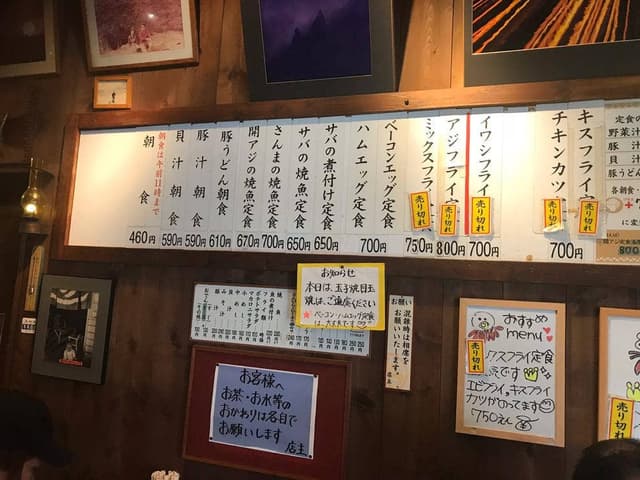 朝食
460円
朝食は午前11時まで
貝汁朝食
590円
豚汁朝食
590円
豚うどん朝食
610円
開アジの焼魚定食
670円
さんまの焼魚定食
700円
サバの焼魚定食
650円
サバの煮付け定食
650円
ハムエッグ定食
700円
ベーコンエッグ定食
750円
ミックスフライ
売り切れ
800円
アジフライ定
売り切れ
700円
イワシフライ
売り切れ
チキンカツ
売り切れ
700円
キスフライ
売り切れ
定食の
野菜汁
豚汁
貝汁
豚うどん
各朝食
お知らせ
本日は、玉子焼、目玉
焼は、ご遠慮ください
ベーコン・ハムエッグ定食
は、大丈夫です
お願い
混雑時は相席を
お願いいたします。
店主
お客様へ
お茶・お水等の
おかわりは各自で
お願いします
店主
おすすめ
menu
売り切れ
クスフライ定食
です
エビフライ。キスフライ
カツがのってます
750えん
売り切れ